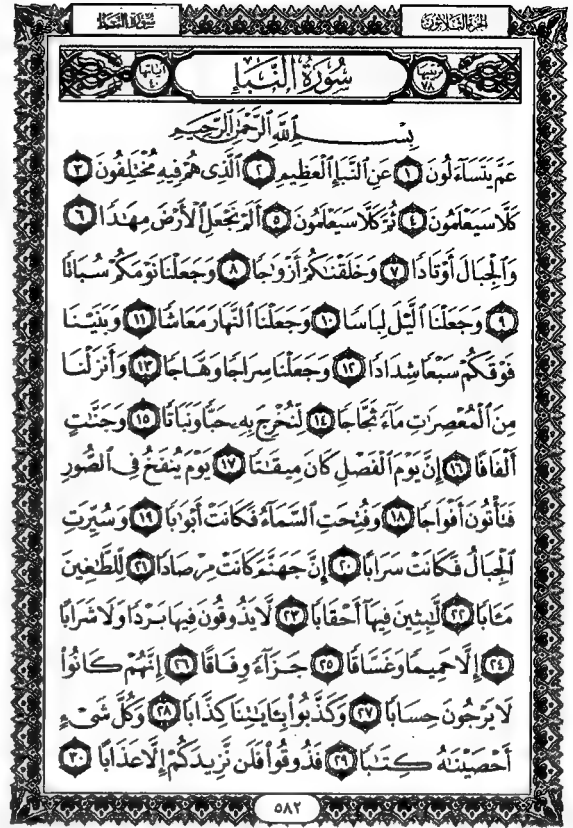 الجزء الثلاثون
سورة النبأ
ترتيبها ٧٨
سُورَةُ النَّبَإِ
آياتها ٤٠
بِسْمِ اللَّهِ الرَّحْمَٰنِ الرَّحِيمِ
عَمَّ يَتَسَآءَلُونَ ١ عَنِ ٱلنَّبَإِ ٱلْعَظِيمِ ٢ ٱلَّذِى هُمْ فِيهِ مُخْتَلِفُونَ ٣
كَلَّا سَيَعْلَمُونَ ٤ ثُمَّ كَلَّا سَيَعْلَمُونَ ٥ أَلَمْ نَجْعَلِ ٱلْأَرْضَ مِهَٰدًا ٦
وَٱلْجِبَالَ أَوْتَادًا ٧ وَخَلَقْنَٰكُمْ أَزْوَٰجًا ٨ وَجَعَلْنَا نَوْمَكُمْ سُبَاتًا
٩ وَجَعَلْنَا ٱلَّيْلَ لِبَاسًا ١٠ وَجَعَلْنَا ٱلنَّهَارَ مَعَاشًا ١١ وَبَنَيْنَا
فَوْقَكُمْ سَبْعًا شِدَادًا ١٢ وَجَعَلْنَا سِرَاجًا وَهَّاجًا ١٣ وَأَنزَلْنَا
مِنَ ٱلْمُعْصِرَٰتِ مَآءً ثَجَّاجًا ١٤ لِّنُخْرِجَ بِهِۦ حَبًّا وَنَبَاتًا ١٥ وَجَنَّٰتٍ
أَلْفَافًا ١٦ إِنَّ يَوْمَ ٱلْفَصْلِ كَانَ مِيقَٰتًا ١٧ يَوْمَ يُنفَخُ فِى ٱلصُّورِ
فَتَأْتُونَ أَفْوَاجًا ١٨ وَفُتِحَتِ ٱلسَّمَآءُ فَكَانَتْ أَبْوَٰبًا ١٩ وَسُيِّرَتِ
ٱلْجِبَالُ فَكَانَتْ سَرَابًا ٢٠ إِنَّ جَهَنَّمَ كَانَتْ مِرْصَادًا ٢١ لِّلطَّٰغِينَ
مَـَٔابًا ٢٢ لَّٰبِثِينَ فِيهَآ أَحْقَابًا ٢٣ لَّا يَذُوقُونَ فِيهَا بَرْدًا وَلَا شَرَابًا
٢٤ إِلَّا حَمِيمًا وَغَسَّاقًا ٢٥ جَزَآءً وِفَاقًا ٢٦ إِنَّهُمْ كَانُوا۟
لَا يَرْجُونَ حِسَابًا ٢٧ وَكَذَّبُوا۟ بِـَٔايَٰتِنَا كِذَّابًا ٢٨ وَكُلَّ شَىْءٍ
أَحْصَيْنَٰهُ كِتَٰبًا ٢٩ فَذُوقُوا۟ فَلَن نَّزِيدَكُمْ إِلَّا عَذَابًا ٣٠
٥٨٢